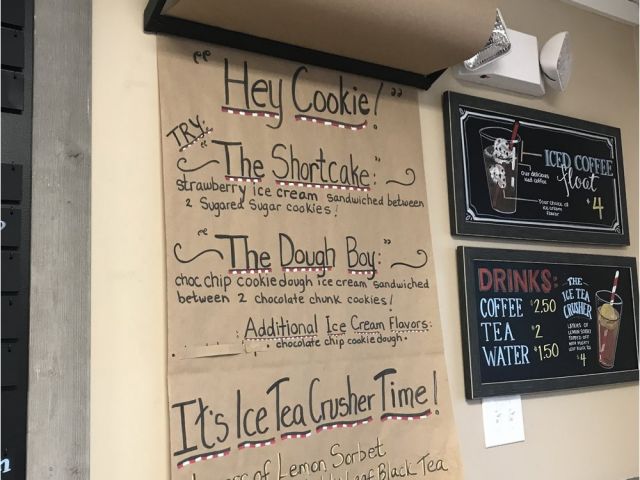 "Hey Cookie!"
TRY:
"The Shortcake:"
strawberry ice cream sandwiched between
2 Sugared Sugar cookies!
"The Dough Boy:"
choc chip cookie dough ice cream sandwiched
between 2 chocolate chunk cookies!
Additional Ice Cream Flavors:
chocolate chip cookie dough
It's Ice Tea Crusher Time!
of Lemon Sorbet
Leaf Black Tea
ICED COFFEE
float
Our delicious
iced coffee
Your choice of
ice cream
flavor
$4
DRINKS:
COFFEE $2.50
TEA $2
WATER $1.50
THE
ICE TEA
CRUSHER
LAYERS OF
LEMON SORBET
TOPPED OFF
LEAF BLACK TEA
$4